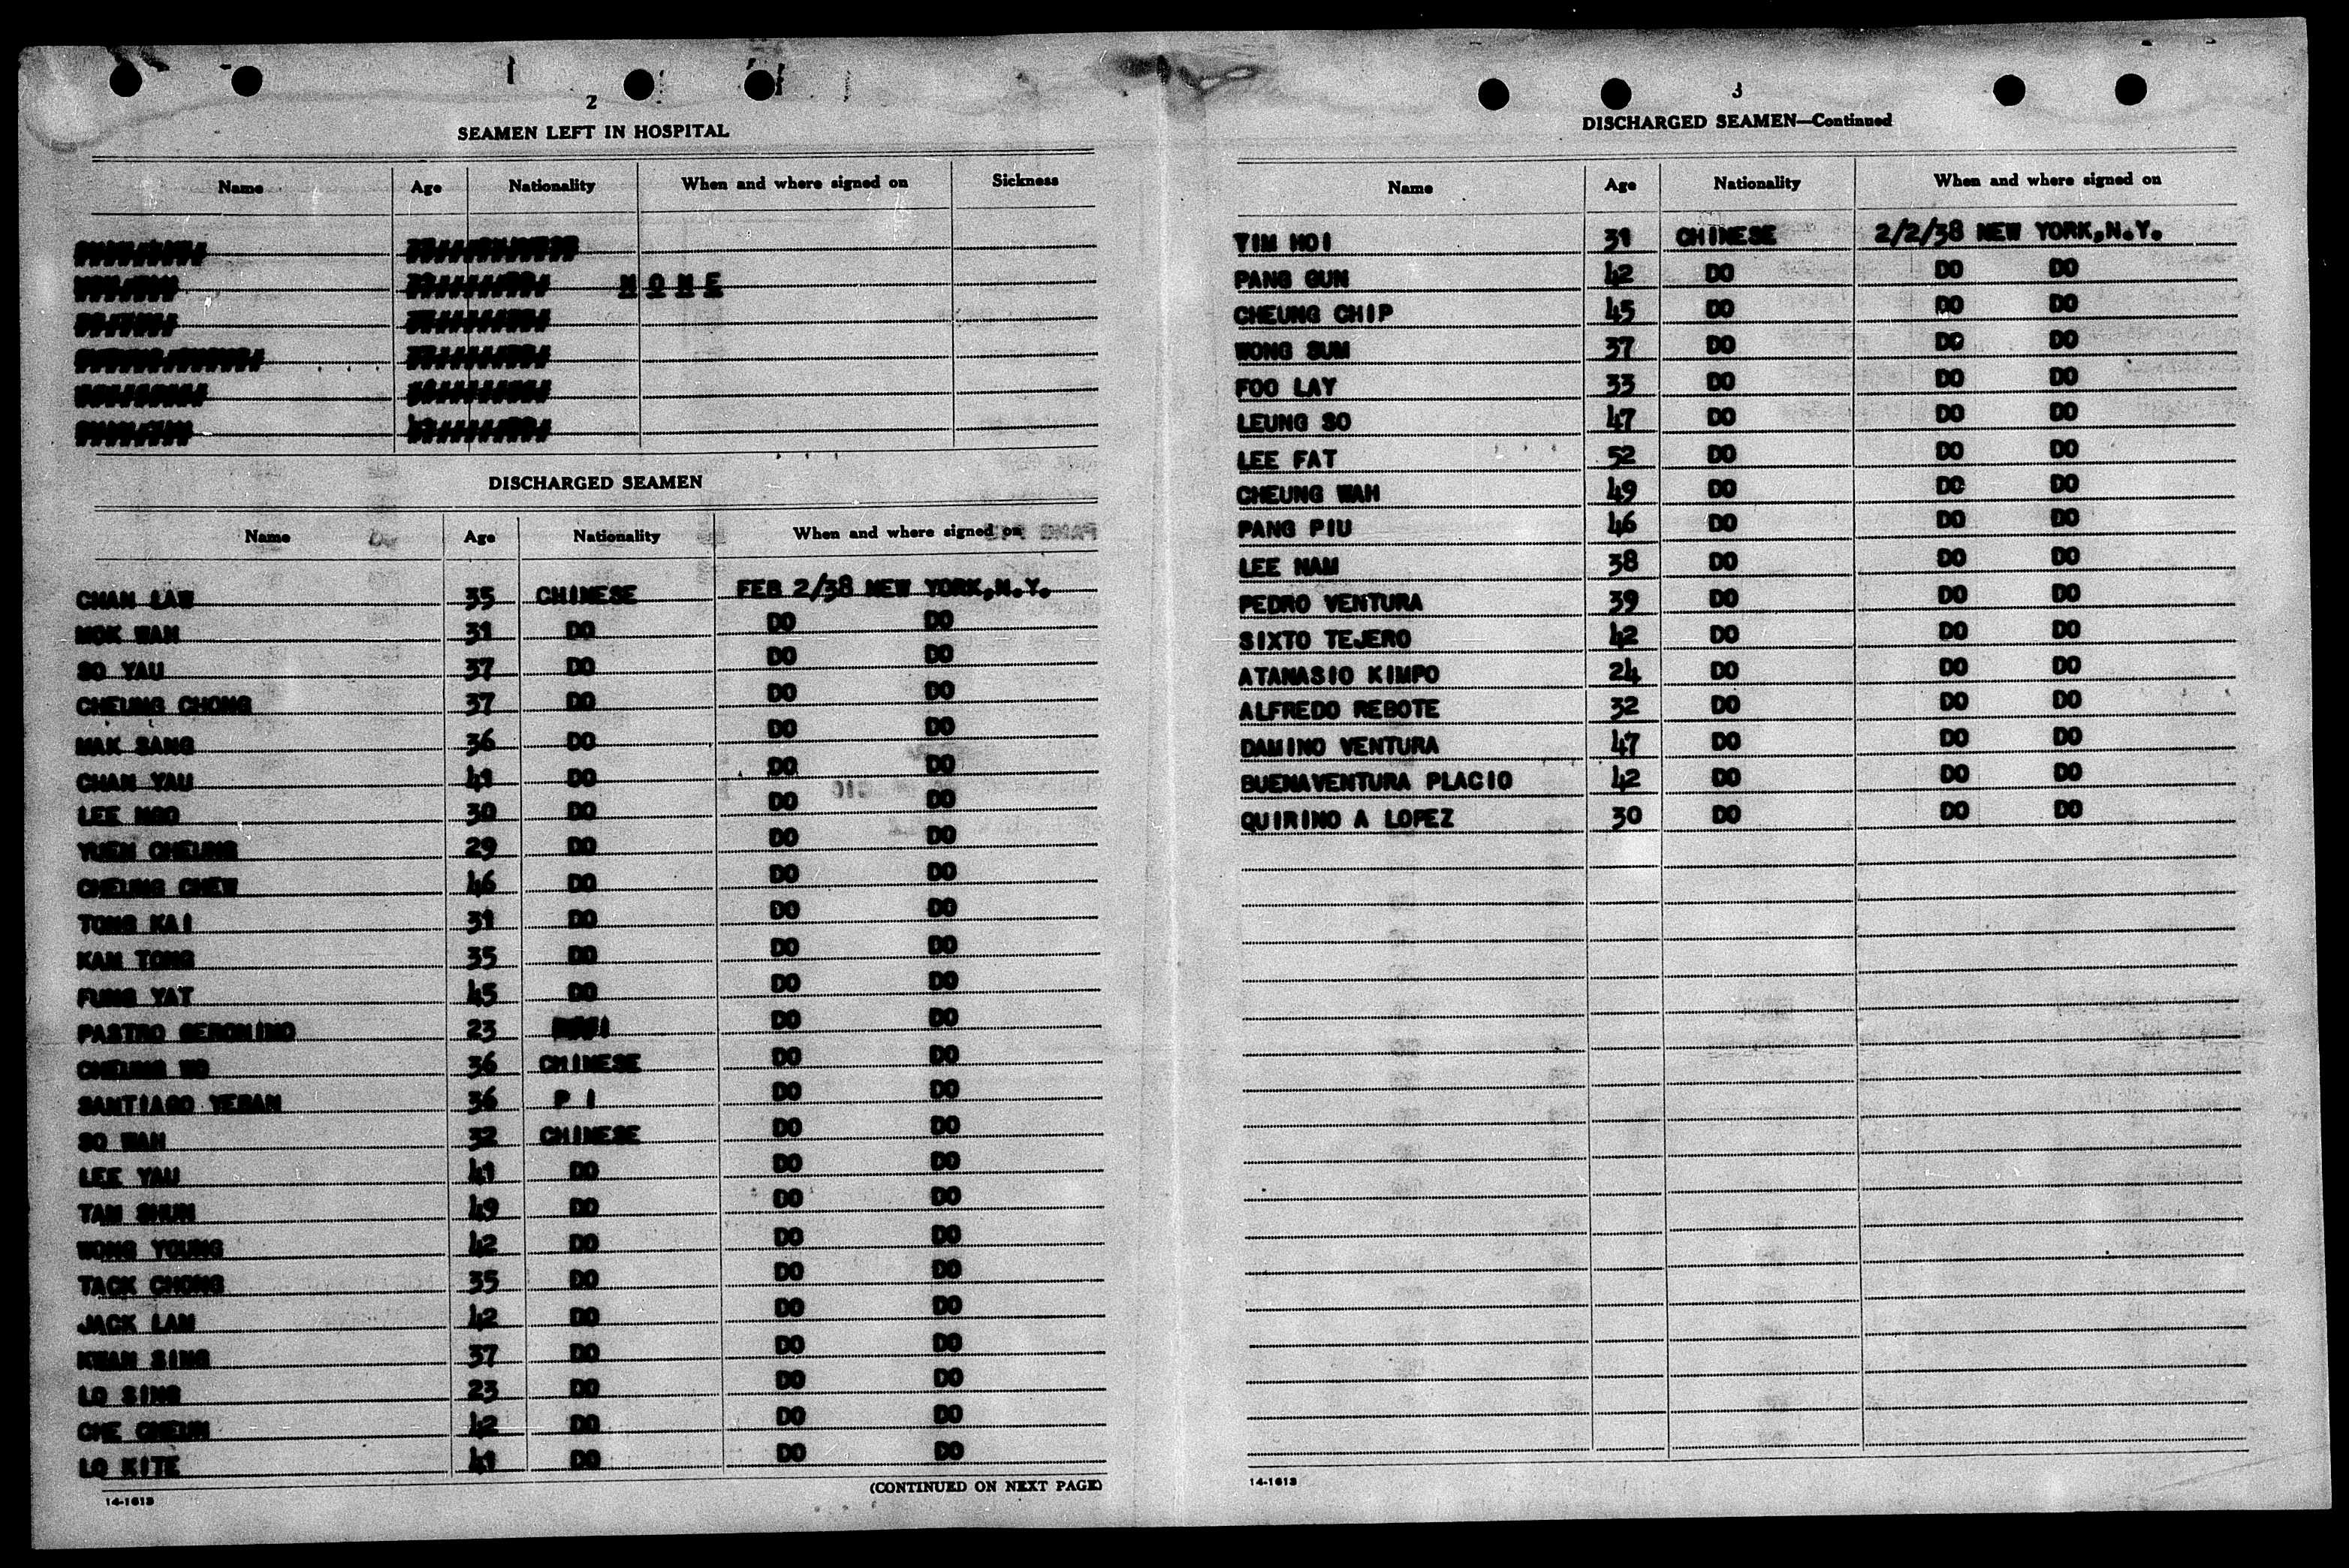 2
SEAMEN LEFT IN HOSPITAL
Name Age Nationality When and where signed on Sickness
NONE
DISCHARGED SEAMEN
Name Age Nationality When and where signed on
CHAN LAW 35 CHINESE FEB 2/38 NEW YORK,N.Y.
MOK WAH 31 DO DO DO
SO YAU 37 DO DO DO
CHEUNG CHONG 37 DO DO DO
MAK SANG 36 DO DO DO
CHAN YAU 41 DO DO DO
LEE NGO 30 DO DO DO
YUEN CHEUNG 29 DO DO DO
CHEUNG CHEW 46 DO DO DO
TONG KAI 31 DO DO DO
KAM TONG 35 DO DO DO
FUNG YAT 45 DO DO DO
PASTRO GERONIMO 23 DO DO
CHEUNG WO 36 CHINESE DO DO
SANTIAGO YEBAN 36 P I DO DO
SO WAH 32 CHINESE DO DO
LEE YAU 41 DO DO DO
TAM SHUN 49 DO DO DO
WONG YOUNG 42 DO DO DO
TACK CHONG 35 DO DO DO
JACK LAM 42 DO DO DO
KWAN SING 37 DO DO DO
LO SING 23 DO DO DO
CHE CHEUN 42 DO DO DO
LO KITE 41 DO DO DO
(CONTINUED ON NEXT PAGE)
14-1613
3
DISCHARGED SEAMEN—Continued
Name Age Nationality When and where signed on
YIM HOI 31 CHINESE 2/2/38 NEW YORK,N.Y.
PANG GUN 42 DO DO DO
CHEUNG CHIP 45 DO DO DO
WONG SUM 37 DO DO DO
FOO LAY 33 DO DO DO
LEUNG SO 47 DO DO DO
LEE FAT 52 DO DO DO
CHEUNG WAH 49 DO DO DO
PANG PIU 46 DO DO DO
LEE NAM 38 DO DO DO
PEDRO VENTURA 39 DO DO DO
SIXTO TEJERO 42 DO DO DO
ATANASIO KIMPO 24 DO DO DO
ALFREDO REBOTE 32 DO DO DO
DAMINO VENTURA 47 DO DO DO
BUENAVENTURA PLACIO 42 DO DO DO
QUIRINO A LOPEZ 30 DO DO DO
14-1613